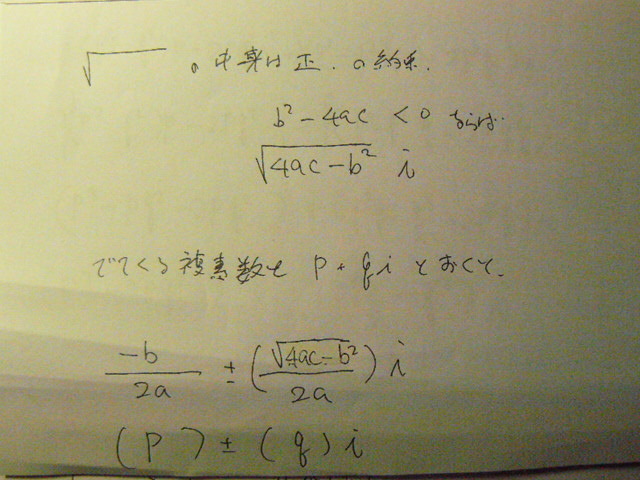 √‾ の中身は正. の約束.
b² - 4ac < 0 ならば
√(4ac - b²) i
でてくる複素数を p + qi とおくと、
-b/2a ± (√(4ac - b²)/2a) i
(p) ± (q) i